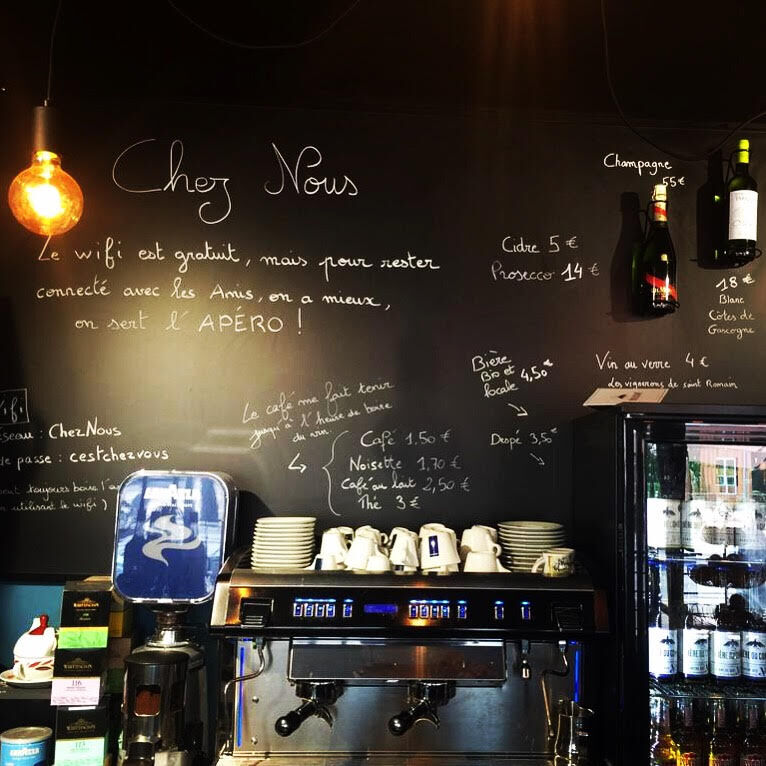 Chez Nous
Le wifi est gratuit, mais pour rester
connecté avec les Amis, on a mieux,
on sert l'APÉRO !
Champagne
55 €
Cidre 5 €
Prosecco 14 €
18 €
Blanc
Côtes de
Gascogne
Vin au verre 4 €
Les vignerons de saint Romain
Bière
Bio et
locale 4,50 €
Despé 3,50 €
Le café me fait tenir
jusqu'à l'heure de boire
du vin
Café 1,50 €
Noisette 1,70 €
Café au lait 2,50 €
Thé 3 €
ifi
seau : ChezNous
de passe : cestchezvous
toujours boire l'a
utilisant le wifi )
LAVAZZA
WHITTINGTON
WHITTINGTON
116
WHITTINGTON
113
LAVAZZA